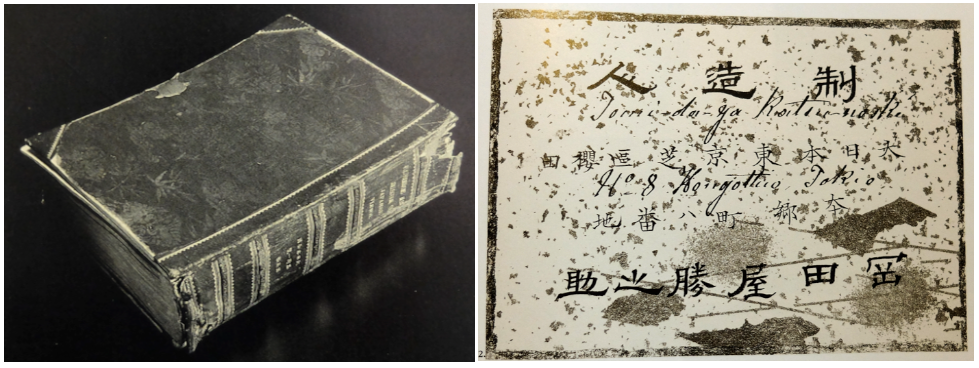 制造人
Tomi-da-ya
大日本東京芝區櫻田
No 8 Tokio
本郷町八番地
冨田屋勝之助
2.